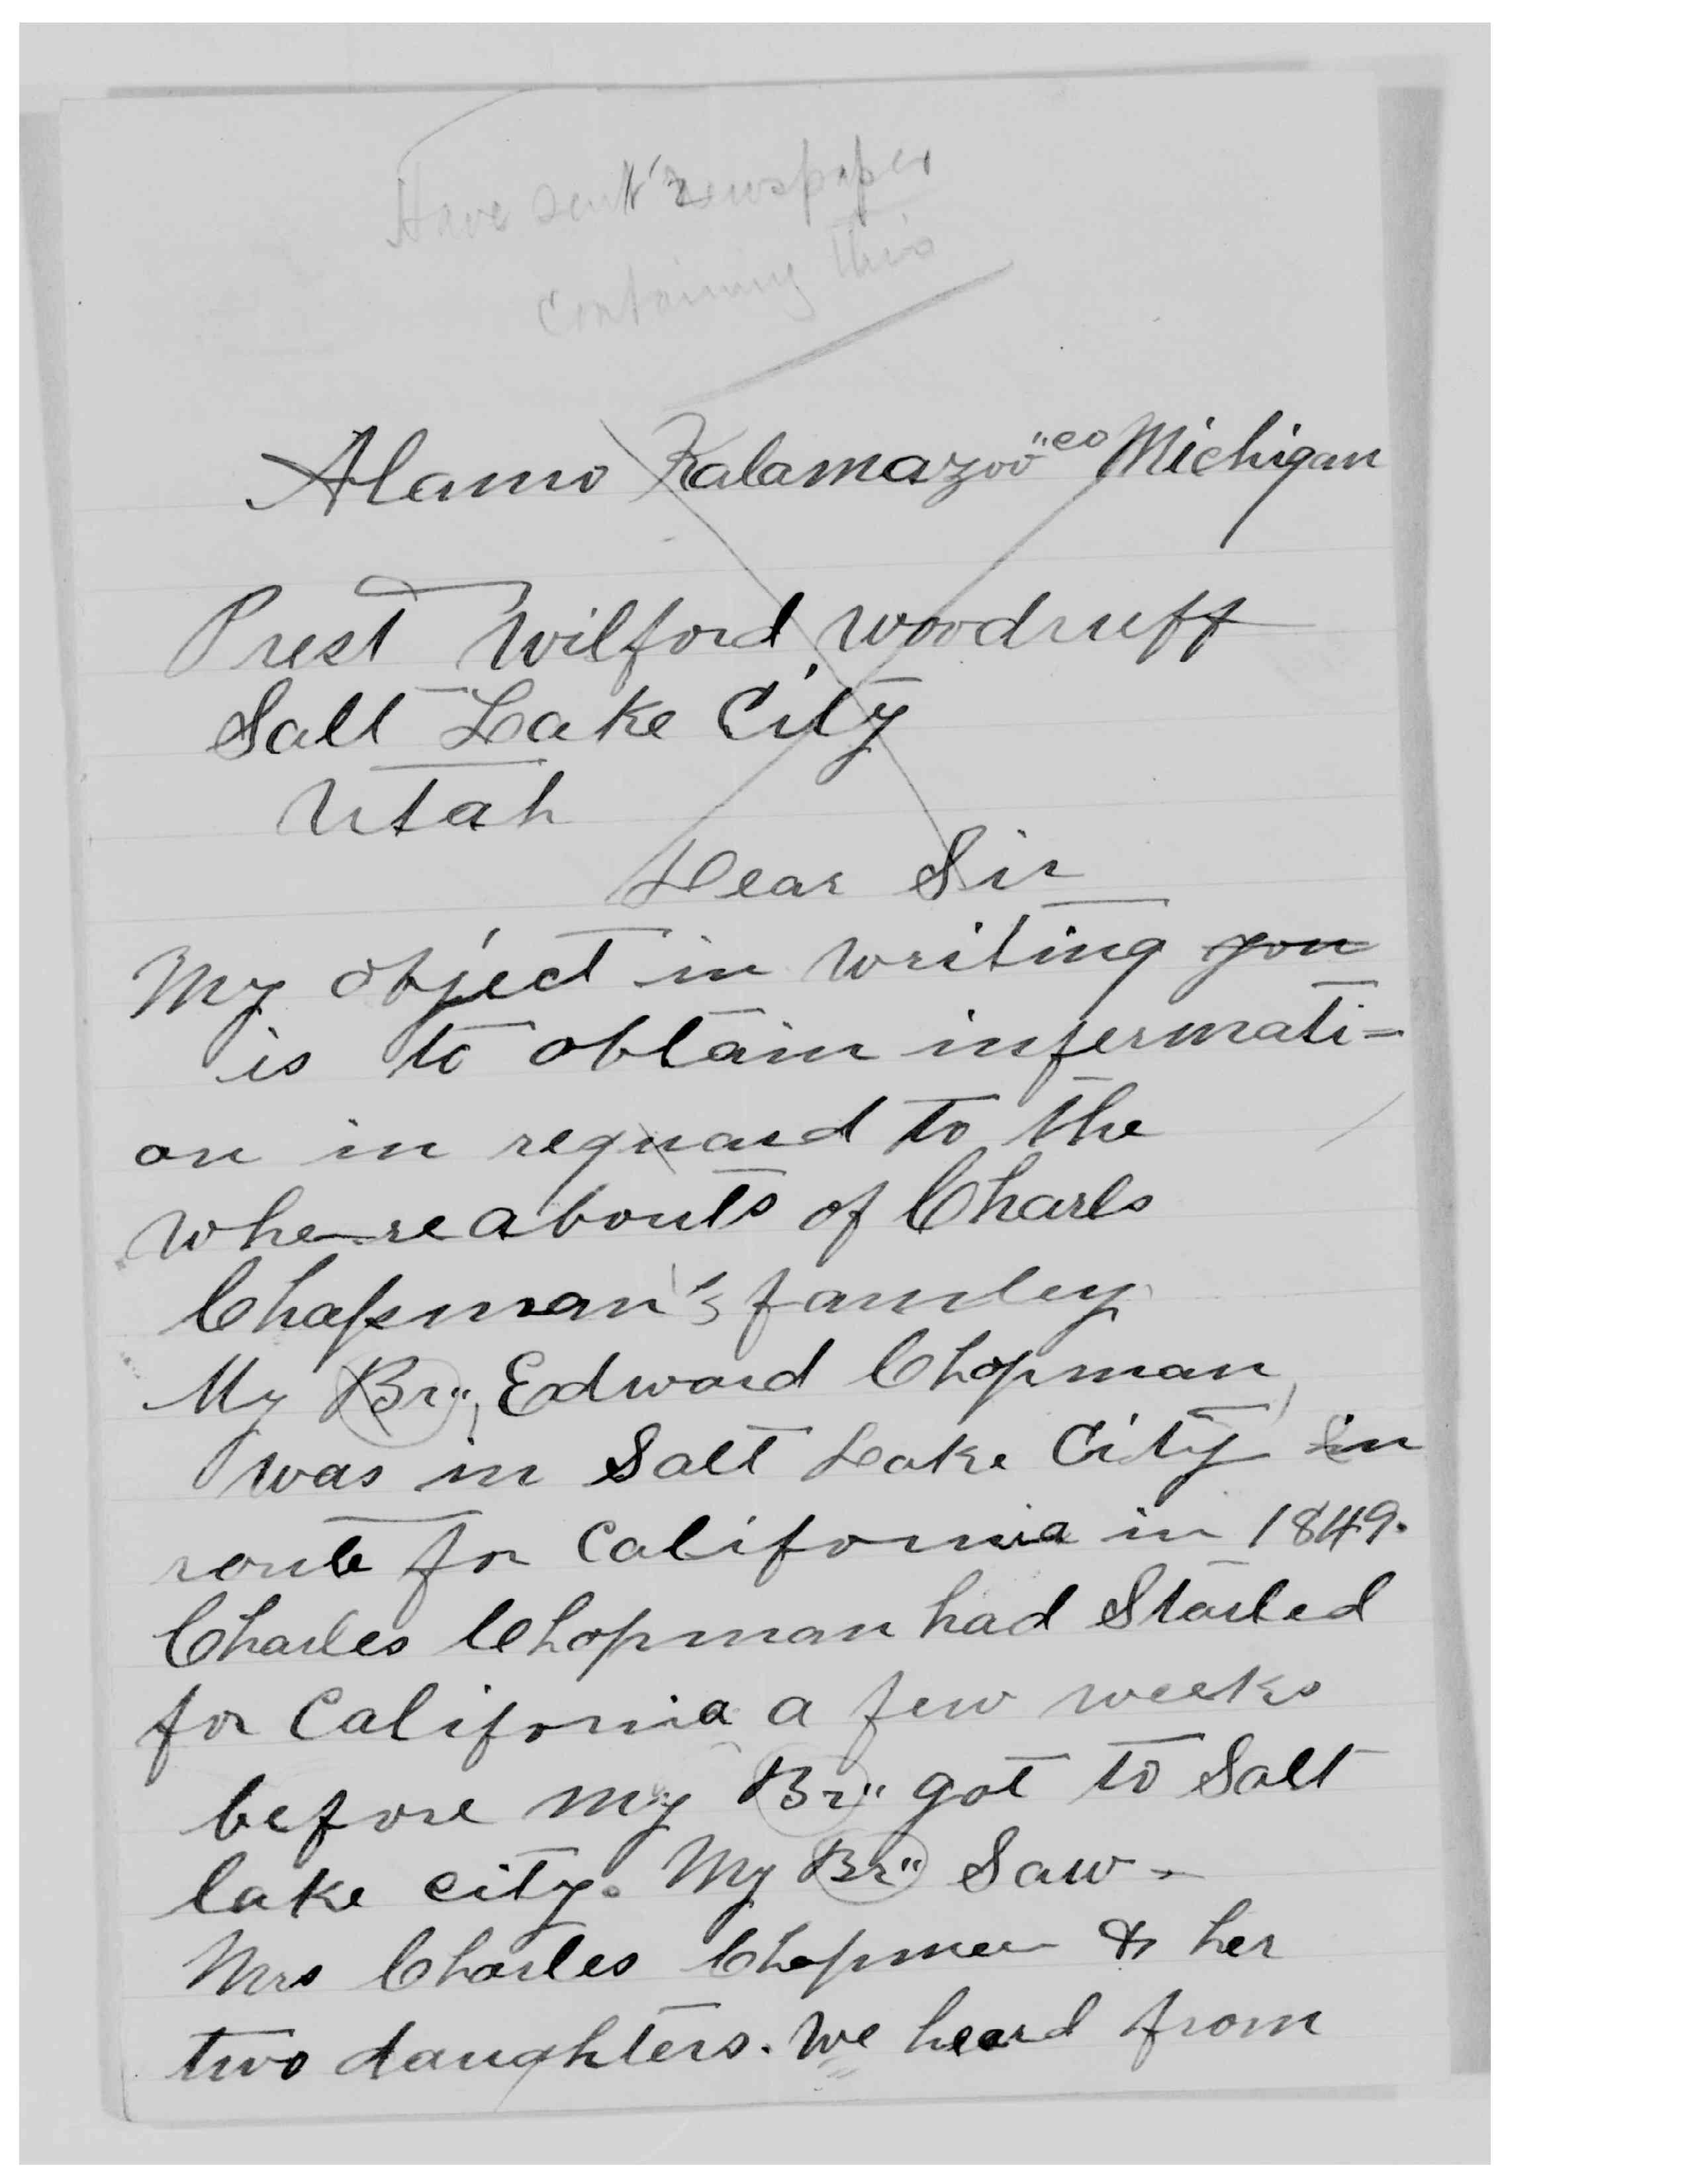 Have sent newspaper
containing this
Alamo Kalamazoo "co Michigan
Prest Wilford Woodruff
Salt Lake City
Utah
Dear Sir
My object in writing you
is to obtain informati=
on in reguard to the
whereabouts of Charls
Chapman's famley
My Br", Edward Chapman,
was in Salt Lake City in
route for California in 1849.
Charles Chapman had Started
for California a few weeks
before my Br" got to Salt
lake city. My Br" Saw -
Mrs Charles Chapman & her
two daughters. We heard from